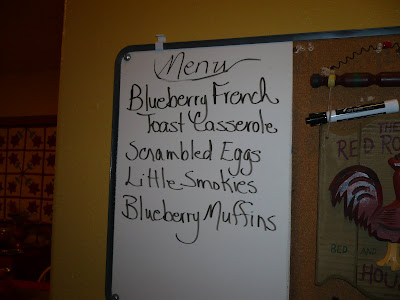 Menu
Blueberry French
Toast Casserole
Scrambled Eggs
Little Smokies
Blueberry Muffins
THE
RED RO
BED AND
HOU